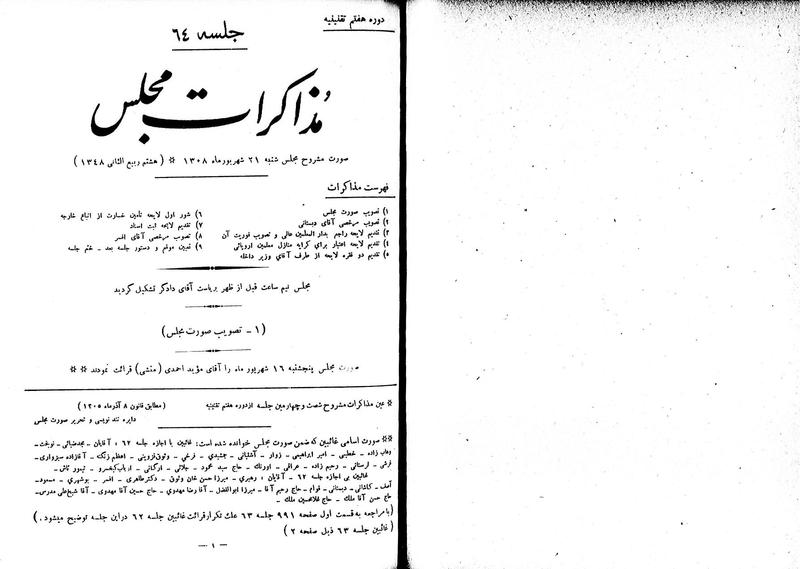 دوره هفتم تقنینیه
جلسه ٦٤
مذاکرات مجلس
صورت مشروح مجلس شنبه ۲۱ شهریورماه ۱۳۰۸ * ( هشتم ربیع الثانی ۱۳٤۸ )
فهرست مذاکرات
۱) تصویب صورت مجلس
۲) تصویب مرخصی آقای دبستانی
۳) تقدیم لایحه راجع بدارالمعلمین عالی و تصویب فوریت آن
٤) تقدیم لایحه اعتبار برای کرایه منازل معلمین اروپائی
٥) تقدیم دو فقره لایحه از طرف آقای وزیر داخله
٦) شور اول لایحه تأمین خسارت از اتباع خارجه
۷) تقدیم لایحه ثبت اسناد
۸) تصویب مرخصی آقای افسر
۹) تعیین موقع و دستور جلسه بعد - ختم جلسه
مجلس نیم ساعت قبل از ظهر بریاست آقای دادگر تشکیل گردید
(۱ - تصویب صورت مجلس)
صورت مجلس پنجشنبه ۱٦ شهریور ماه را آقای مؤید احمدی (منشی) قرائت نمودند **
* عین مذاکرات مشروح شصت و چهارمین جلسه از دوره هفتم تقنینیه (مطابق قانون ۸ آذرماه ۱۳۰٥)
دایره تند نویسی و تحریر صورت مجلس
** صورت اسامی غائبین که ضمن صورت مجلس خوانده شده است: غائبین با اجازه جلسه ٦۲ : آقایان - مجدضیائی - نوبخت -
وهاب زاده - خطیبی - امیر ابراهیمی - زوار - آشتیانی - جمشیدی - فرخی - وثوق‌قزوینی - اعظم زنگنه - آقازاده سبزواری -
قرشی - لرستانی - رحیم زاده - عراقی - اورنگ - حاج سید محمود - جلائی - ارگانی - ارباب‌کیخسرو - تیمور تاش -
غائبین بی اجازه جلسه ٦۲ - آقایان : رهبری - میرزا حسن خان وثوق - دکترطاهری - افسر - بوشهری - مسعود -
آصف - کاشانی - دبستانی - قوام - حاج رحیم آقا - میرزا ابوالفضل - آقا رضا مهدوی - حاج حسین آقا مهدوی - آقا شیخ‌علی مدرس -
حاج حسن آقا ملک - حاج غلامحسین ملک -
(با مراجعه به قسمت اول صفحه ۹۹۱ جلسه ٦۳ علت تکرار قرائت غائبین جلسه ٦۲ در این جلسه توضیح میشود.)
(غائبین جلسه ٦۳ ذیل صفحه ۲)
- ۱ -